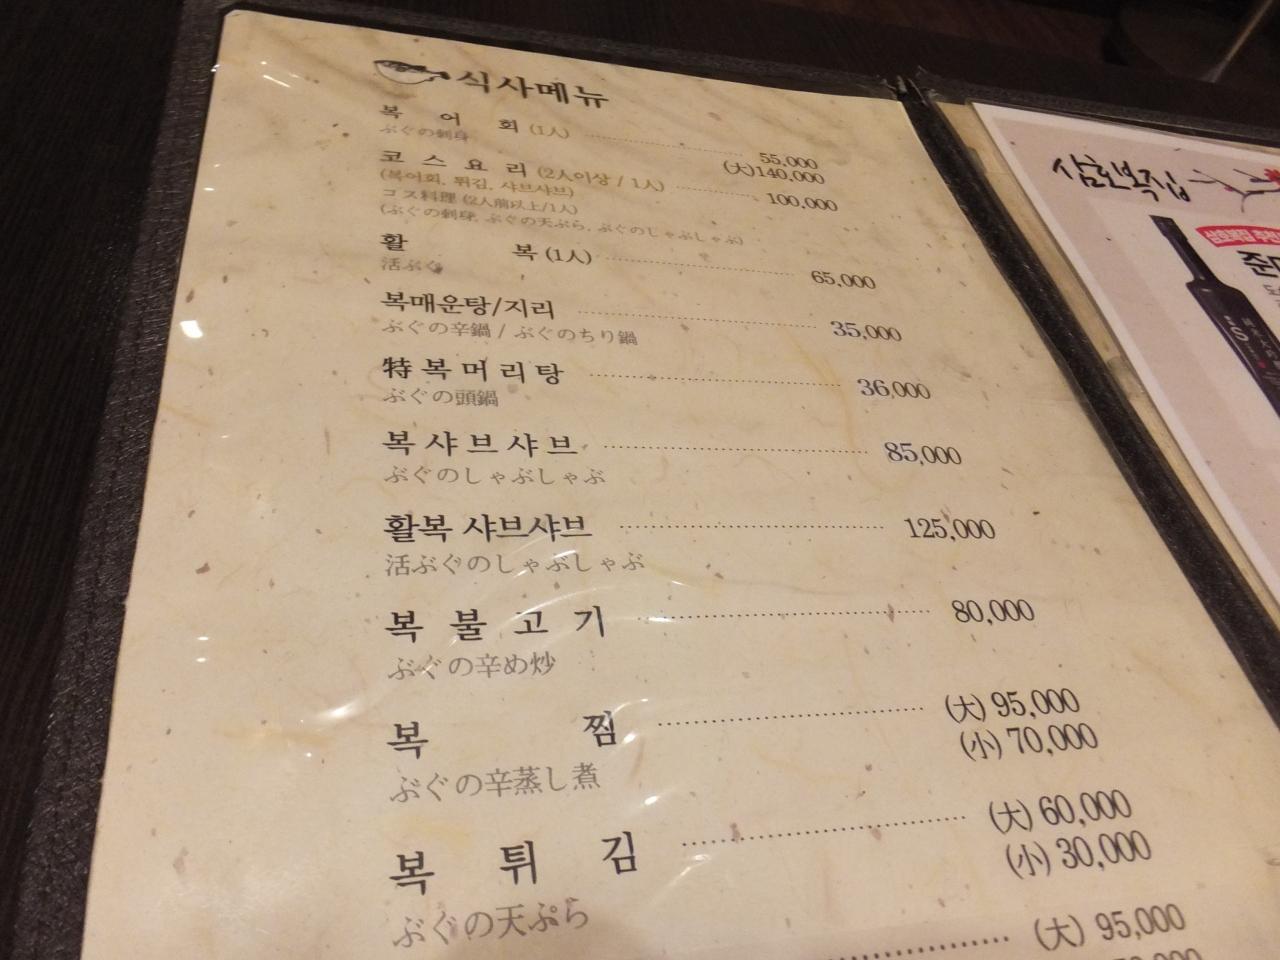 식사메뉴
복 어 회 (1人) 55,000
ぶぐの刺身 (大)140,000
코 스 요 리 (2人이상 / 1人) 100,000
(복어회, 튀김, 샤브샤브)
コス料理 (2人前以上/1人)
(ぶぐの刺身, ぶぐの天ぷら, ぶぐのしゃぶしゃぶ)
활 복 (1人) 65,000
活ぶぐ
복매운탕/지리 35,000
ぶぐの辛鍋 / ぶぐのちり鍋
特 복 머 리 탕 36,000
ぶぐの頭鍋
복 샤 브 샤 브 85,000
ぶぐのしゃぶしゃぶ
활복 샤브샤브 125,000
活ぶぐのしゃぶしゃぶ
복 불 고 기 80,000
ぶぐの辛め炒
복 찜 (大) 95,000
(小) 70,000
ぶぐの辛蒸し煮
복 튀 김 (大) 60,000
(小) 30,000
ぶぐの天ぷら
(大) 95,000
삼호복집
삼호복집